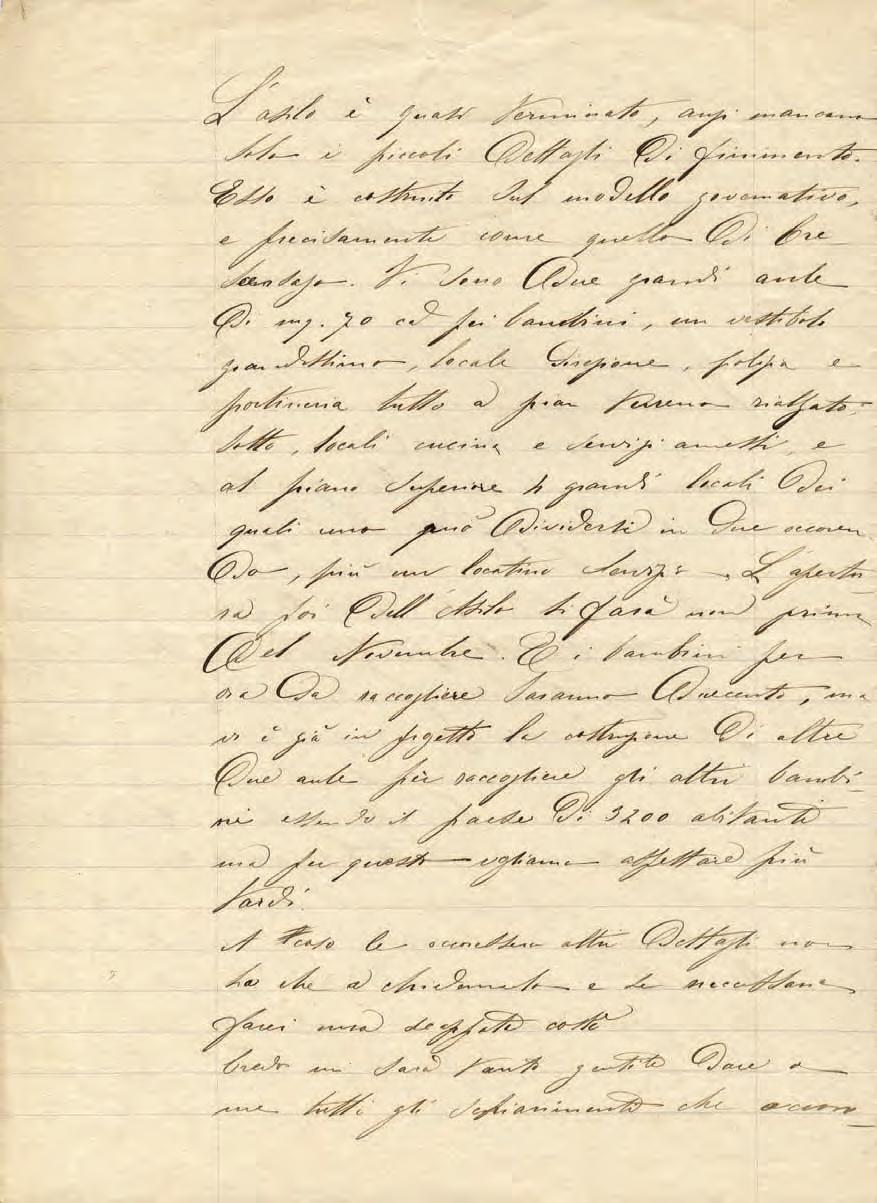 L'asilo è quasi terminato, anzi mancano
solo i piccoli dettagli di finimento.
Esso è costruito sul modello governativo,
e precisamente come quello di Cre
Vi sono due grandi aule
di mq. 70 cd pei bambini, un vestibolo
grandissimo, locale Direzione, e
portineria tutto a pian terreno rialzato;
sotto, locali cucina e servizi annessi, e
al piano superiore 4 grandi locali dei
quali uno può dividersi in due occoren
do, più un locatino servizi. L'apertu
ra poi dell'Asilo si farà non prima
del Novembre. E i bambini per
ora da raccogliere saranno duecento, ma
vi è già in progetto la costruzione di altre
due aule per raccogliere gli altri bambi
ni essendo il paese di 3200 abitanti
ma per questo vogliamo aspettare più
tardi.
A caso le occoressero altri dettagli non
ha che a chiedermelo e se necessario
farei una costì
Credo mi sarà tanto gentile dare a
me tutti gli schiarimenti che occoro